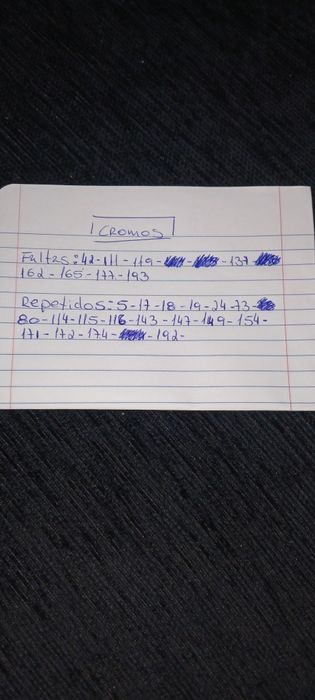 CROMOS
Faltas: 42 - 111 - 119 - - - 137 -
162 - 165 - 177 - 193
Repetidos: 5 - 17 - 18 - 19 - 24 - 73 -
80 - 114 - 115 - 116 - 143 - 147 - 149 - 154 -
171 - 172 - 174 - - 192 -